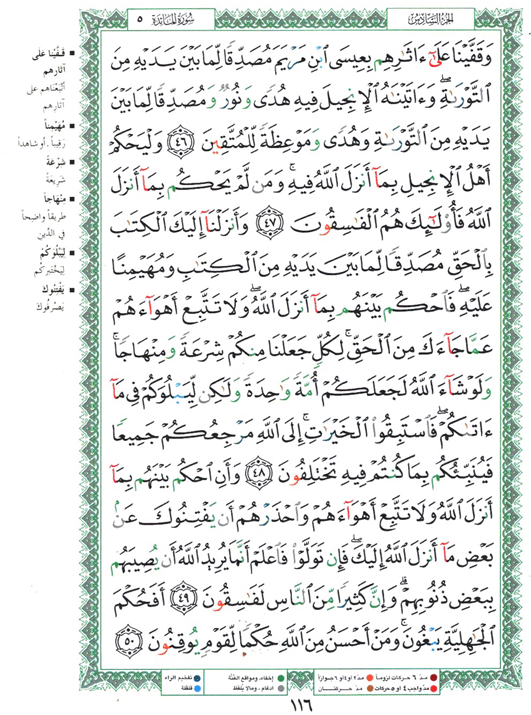 الجزء السادس
سورة المائدة
٥
وَقَفَّيْنَا عَلَىٰٓ ءَاثَٰرِهِم بِعِيسَى ٱبْنِ مَرْيَمَ مُصَدِّقًا لِّمَا بَيْنَ يَدَيْهِ مِنَ
ٱلتَّوْرَىٰةِ ۖ وَءَاتَيْنَٰهُ ٱلْإِنجِيلَ فِيهِ هُدًى وَنُورٌ وَمُصَدِّقًا لِّمَا بَيْنَ
يَدَيْهِ مِنَ ٱلتَّوْرَىٰةِ وَهُدًى وَمَوْعِظَةً لِّلْمُتَّقِينَ ٤٦ وَلْيَحْكُمْ
أَهْلُ ٱلْإِنجِيلِ بِمَآ أَنزَلَ ٱللَّهُ فِيهِ ۚ وَمَن لَّمْ يَحْكُم بِمَآ أَنزَلَ
ٱللَّهُ فَأُو۟لَٰٓئِكَ هُمُ ٱلْفَٰسِقُونَ ٤٧ وَأَنزَلْنَآ إِلَيْكَ ٱلْكِتَٰبَ
بِٱلْحَقِّ مُصَدِّقًا لِّمَا بَيْنَ يَدَيْهِ مِنَ ٱلْكِتَٰبِ وَمُهَيْمِنًا
عَلَيْهِ ۖ فَٱحْكُم بَيْنَهُم بِمَآ أَنزَلَ ٱللَّهُ ۖ وَلَا تَتَّبِعْ أَهْوَآءَهُمْ
عَمَّا جَآءَكَ مِنَ ٱلْحَقِّ ۚ لِكُلٍّ جَعَلْنَا مِنكُمْ شِرْعَةً وَمِنْهَاجًا ۚ
وَلَوْ شَآءَ ٱللَّهُ لَجَعَلَكُمْ أُمَّةً وَٰحِدَةً وَلَٰكِن لِّيَبْلُوَكُمْ فِى مَآ
ءَاتَىٰكُمْ ۖ فَٱسْتَبِقُوا۟ ٱلْخَيْرَٰتِ ۚ إِلَى ٱللَّهِ مَرْجِعُكُمْ جَمِيعًا
فَيُنَبِّئُكُم بِمَا كُنتُمْ فِيهِ تَخْتَلِفُونَ ٤٨ وَأَنِ ٱحْكُم بَيْنَهُم بِمَآ
أَنزَلَ ٱللَّهُ وَلَا تَتَّبِعْ أَهْوَآءَهُمْ وَٱحْذَرْهُمْ أَن يَفْتِنُوكَ عَنۢ
بَعْضِ مَآ أَنزَلَ ٱللَّهُ إِلَيْكَ ۖ فَإِن تَوَلَّوْا۟ فَٱعْلَمْ أَنَّمَا يُرِيدُ ٱللَّهُ أَن يُصِيبَهُم
بِبَعْضِ ذُنُوبِهِمْ ۗ وَإِنَّ كَثِيرًا مِّنَ ٱلنَّاسِ لَفَٰسِقُونَ ٤٩ أَفَحُكْمَ
ٱلْجَٰهِلِيَّةِ يَبْغُونَ ۚ وَمَنْ أَحْسَنُ مِنَ ٱللَّهِ حُكْمًا لِّقَوْمٍ يُوقِنُونَ ٥٠
■ قفّينا على
آثارهم
أتبعناهم على
آثارهم
■ مُهيمناً
رقيباً، أو شاهداً
■ شرعة
شريعة
■ منهاجاً
طريقاً واضحاً
في الدين
■ ليبلوكم
ليختبركم
■ يفتنوك
يصرفوك
مدّ ٦ حركات لزوماً
مدّ ٢ أو ٤ أو ٦ جوازاً
إخفاء، ومواقع الغنّة
تفخيم الراء
مدّ واجب ٤ أو ٥ حركات
مدّ حركتان
ادغام، وما لا يُلفظ
قلقلة
١١٦